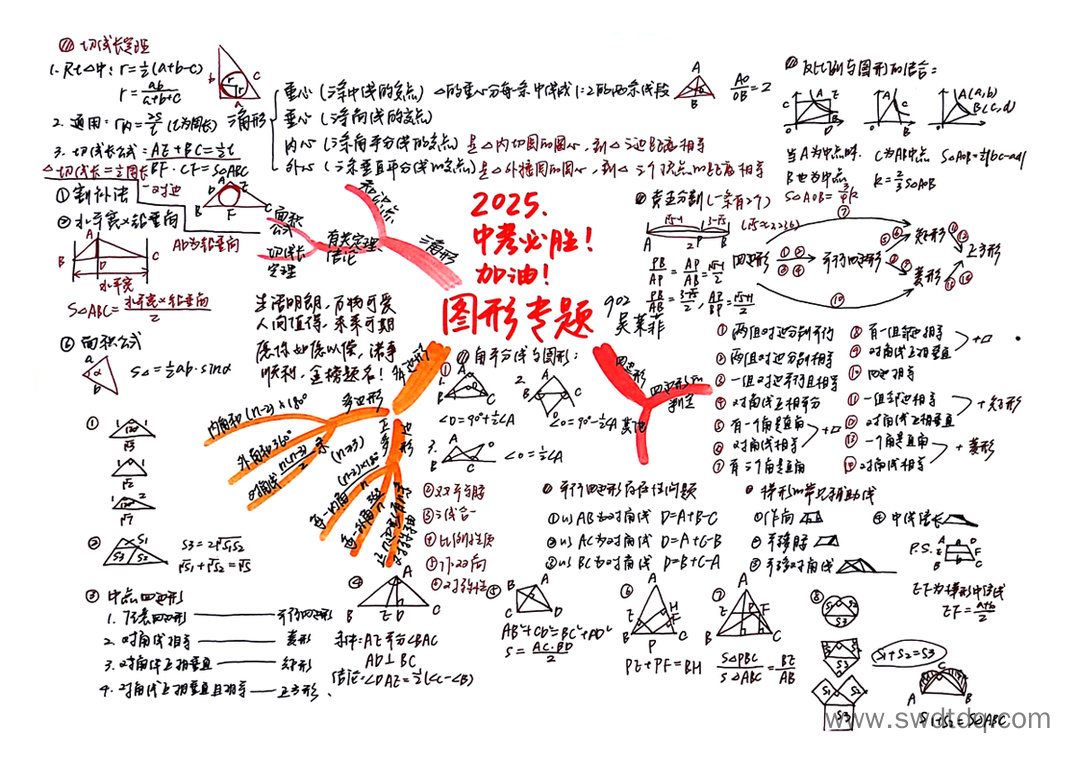 ⑪ 切线长定理
1. Rt△中: r=½(a+b-c)
r=ab/(a+b+c)
2. 通用: r内=2S/l (l为周长)
3. 切线长公式: AE+BC=½l
△切线长=½周长-对边
BF·CF=S△ABC
三角形
重心 (三条中线的交点) △的重心分每条中线成1:2的两条线段
垂心 (三条高线的交点)
内心 (三条角平分线的交点) 是△内切圆的圆心, 到△三边距离相等
外心 (三条垂直平分线的交点) 是△外接圆的圆心, 到△三个顶点的距离相等
AO/OB=2
① 割补法
② 水平宽×铅垂向
AD为铅垂向
水平宽
S△ABC=水平宽×铅垂向/2
面积公式
切线长定理
有关定理结论
三角形
2025.
中考必胜!
加油!
图形专题
902
吴莱菲
生活明朗, 万物可爱
人间值得, 未来可期
愿你如愿以偿, 诸事
顺利, 金榜题名!
反比例与图形的结合:
A(a,b)
B(c,d)
当A为中点时.
B也为中点
C为AB中点
S△AOB=½|bc-ad|
黄金分割 (一条有2个)
PB/AP=AP/AB=(√5-1)/2
PB/AB=(3-√5)/2, AP/BP=(√5+1)/2
四边形
平行四边形
矩形
菱形
正方形
① 两组对边分别平行
② 两组对边分别相等
③ 一组对边平行且相等
④ 对角线互相平分
⑤ 有一个角是直角
⑥ 对角线相等
⑦ 有三个角是直角
⑧ 有一组邻边相等
⑨ 对角线互相垂直
⑩ 四边相等
⑪ 一组邻边相等
⑫ 对角线互相垂直
⑬ 一个角是直角
⑭ 对角线相等
+矩形
+菱形
四边形
四边形的判定
其他
⑥ 面积公式
S△=½ab·sinα
①
②
S3=2√S1S2
√S1+√S2=√S
多边形
多边形
内角和(n-2)×180°
外角和360°
对角线n(n-3)/2条
正多边形
角平分线与图形:
1.
∠O=90°+½∠A
2.
∠O=90°-½∠A
3.
∠O=½∠A
③ 三线合一
③ 中点四边形
1. 任意四边形——平行四边形
2. 对角线相等——菱形
3. 对角线互相垂直——矩形
4. 对角线互相垂直且相等——正方形
④
条件: AE平分∠BAC
AD⊥BC
结论: ∠DAE=½(∠C-∠B)
平行四边形存在性问题
① 以AB为对角线 D=A+B-C
② 以AC为对角线 D=A+C-B
③ 以BC为对角线 D=B+C-A
⑤
AB²+CD²=BC²+AD²
S=AC·BD/2
⑥
PE+PF=BH
⑦
S△PBC/S△ABC=BE/AB
梯形的常见辅助线
① 作高
② 平移腰
③ 平移对角线
④ 中线倍长
P.S.
EF为梯形中位线
EF=(a+b)/2
⑧
S1+S2=S3
S1+S2=S△ABC
www.swdtdq.com